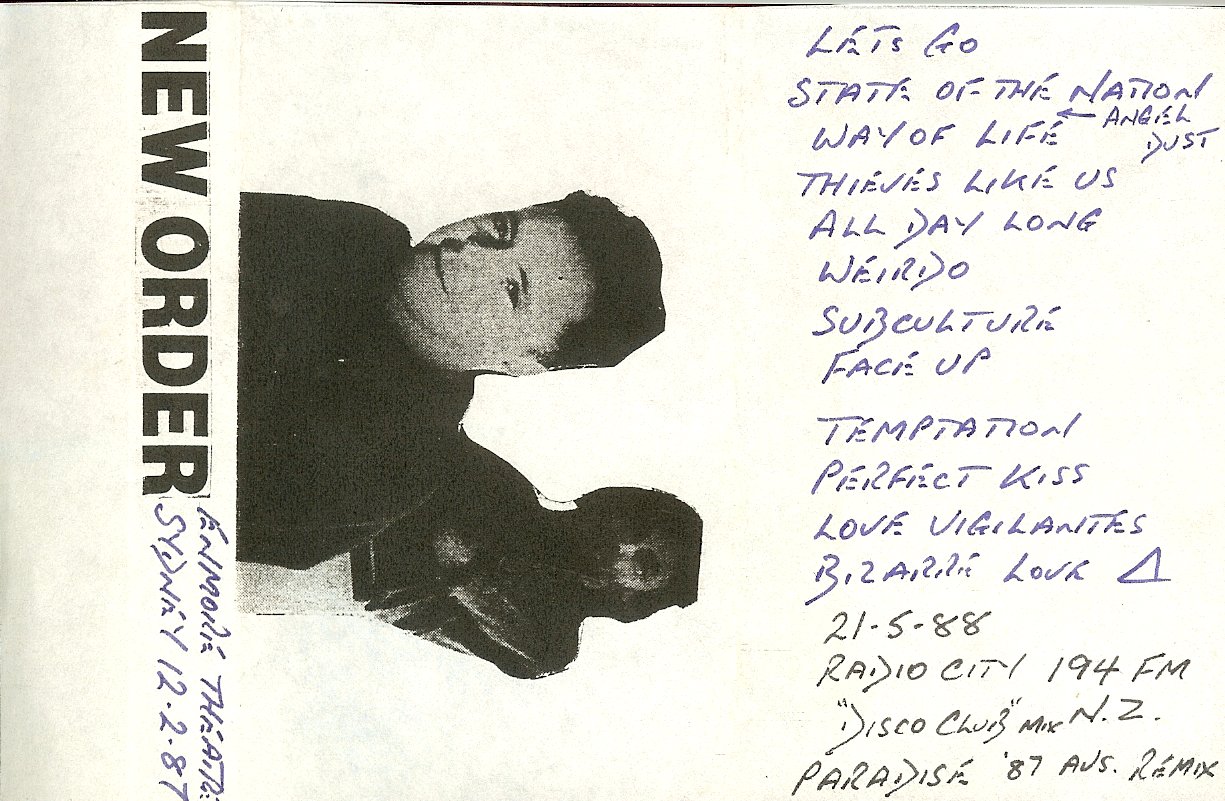 NEW ORDER
ENMORE THEATRE
SYDNEY 12.2.87
LETS GO
STATE OF THE NATION
WAY OF LIFE ← ANGEL
DUST
THIEVES LIKE US
ALL DAY LONG
WEIRDO
SUBCULTURE
FACE UP
TEMPTATION
PERFECT KISS
LOVE VIGILANTES
BIZARRE LOVE Δ
21-5-88
RADIO CITY 194 FM
"DISCO CLUB" MIX N.Z.
PARADISE '87 AUS. REMIX